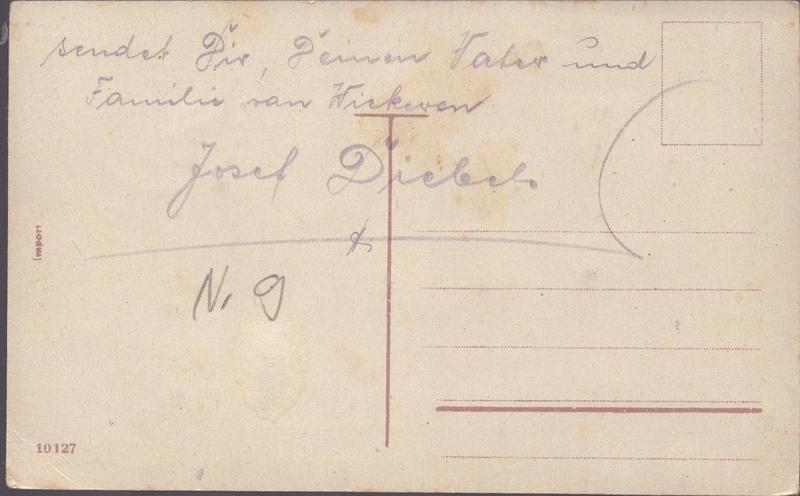 sendet Dir, Deinen Vater und
Familie van Wickeren
Josef Diebels
N. 9
Import
10127